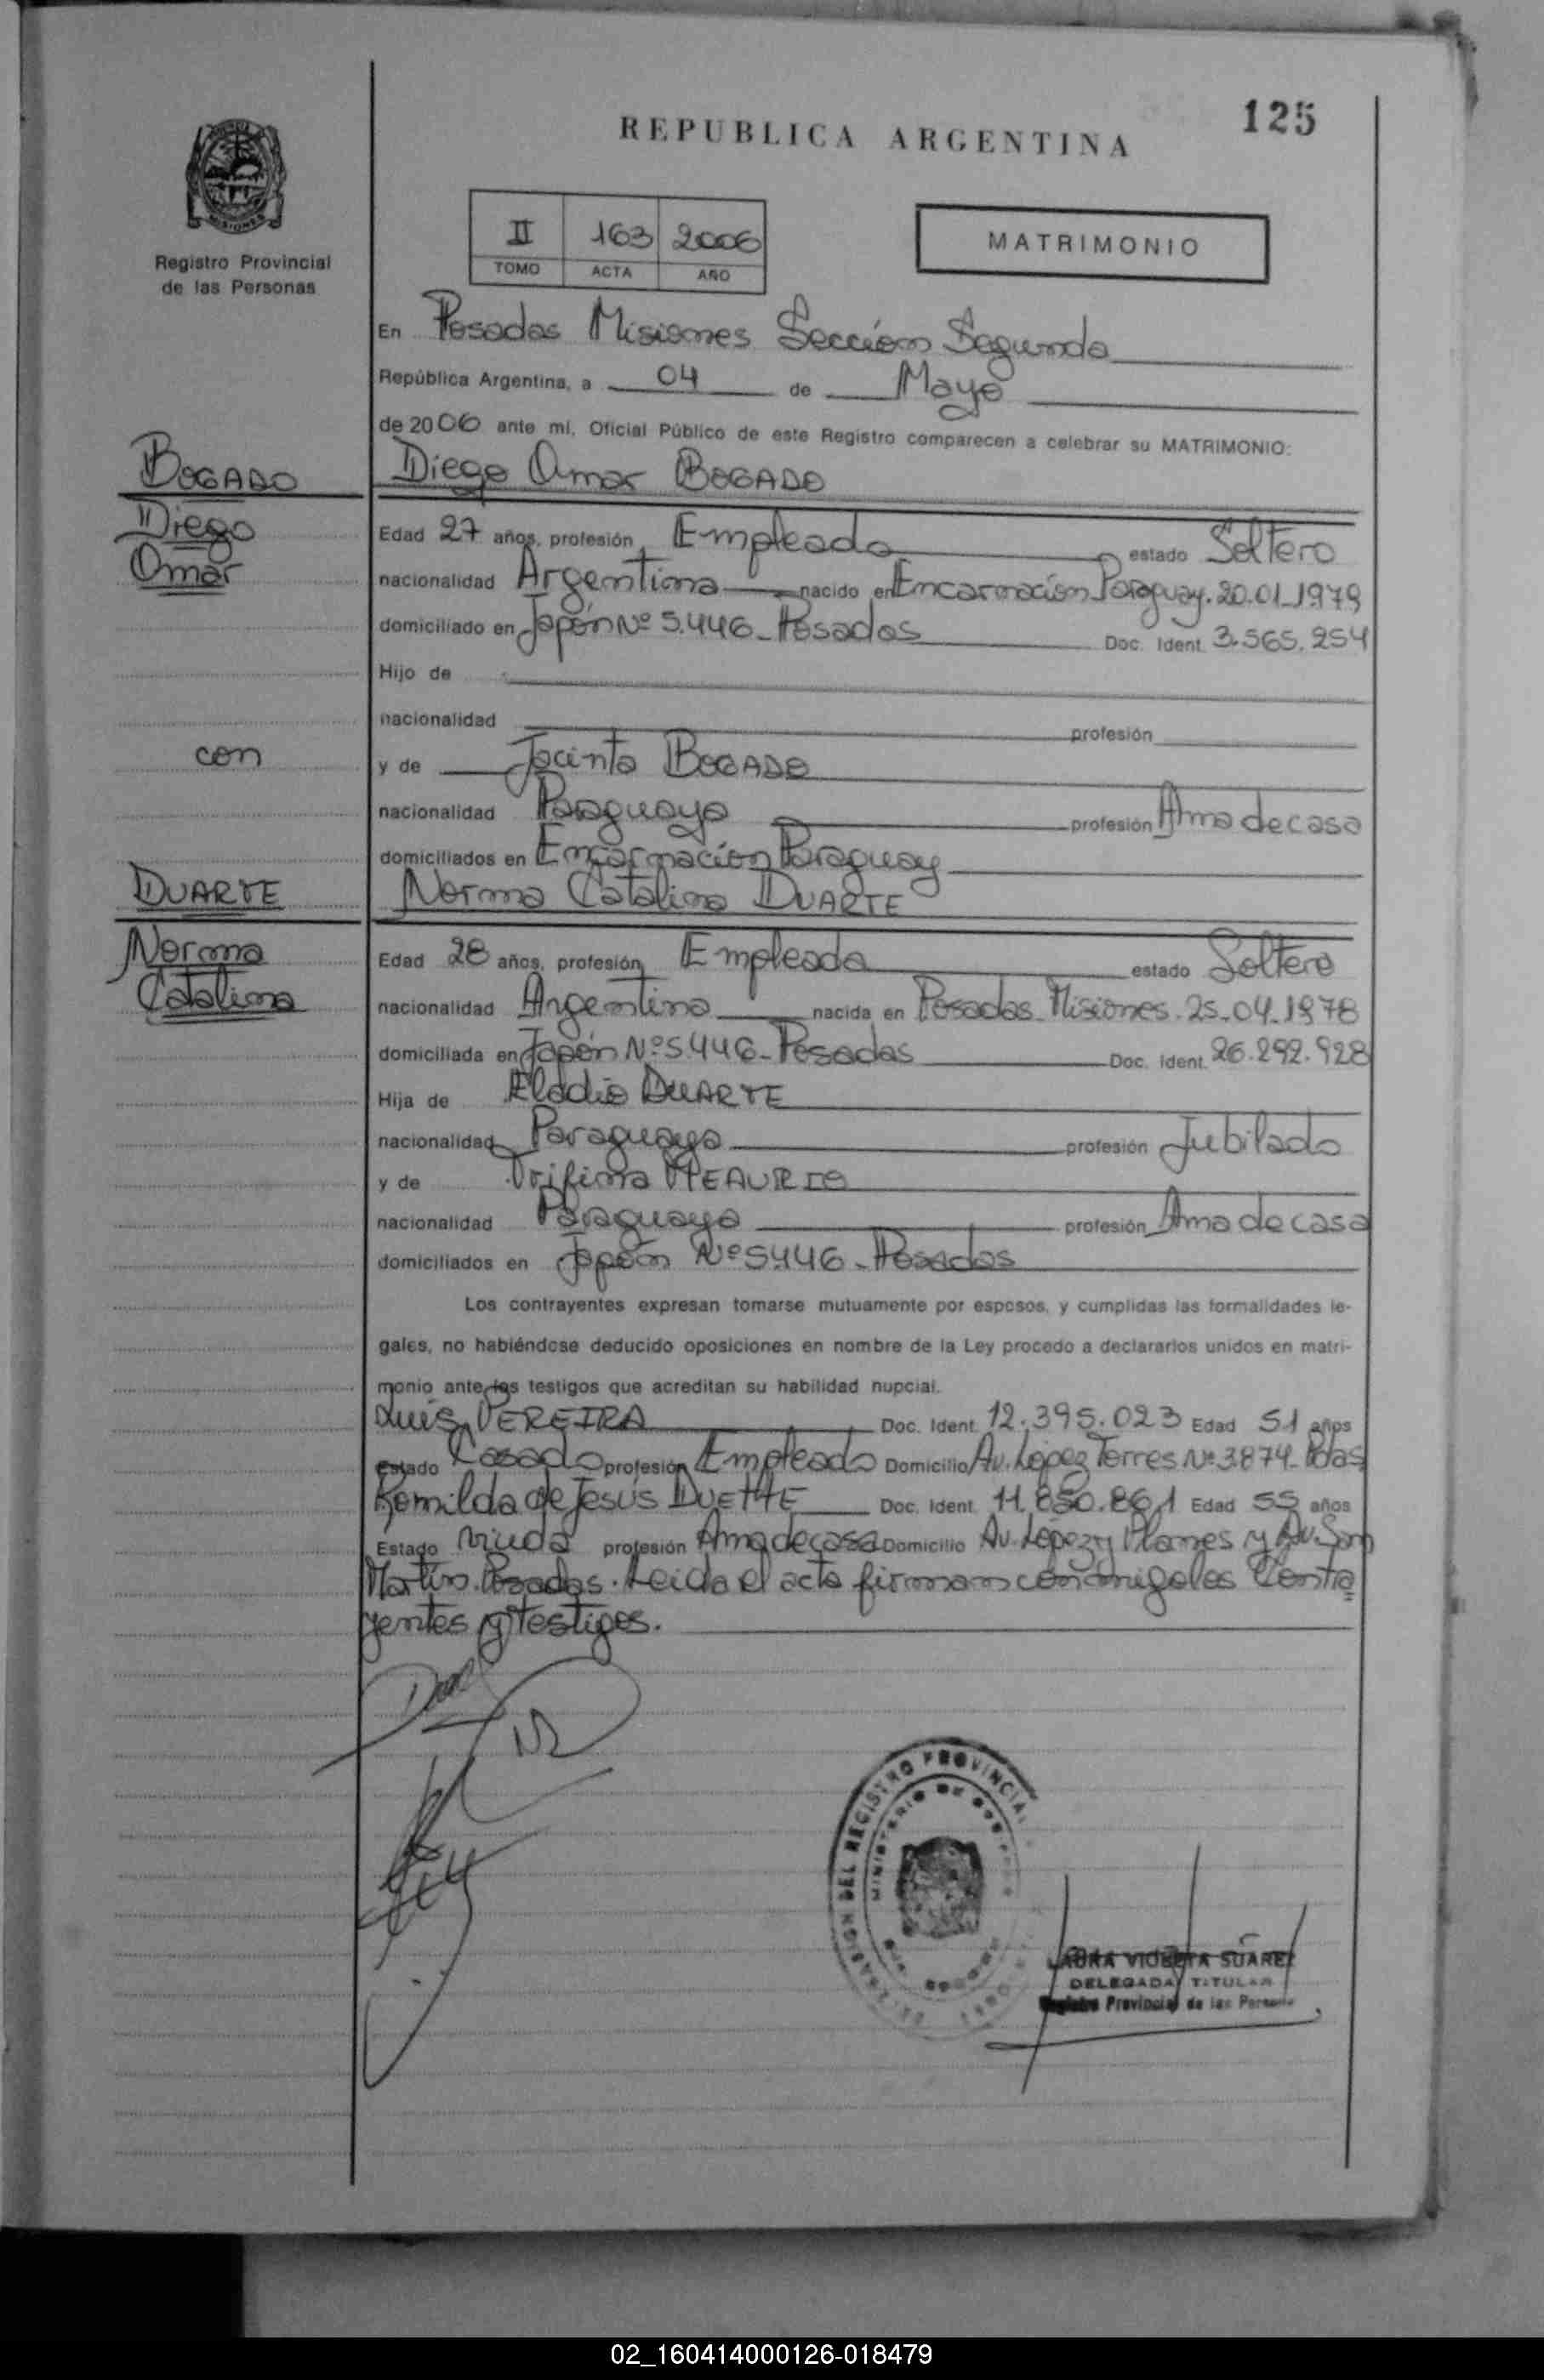 125
REPUBLICA ARGENTINA
MISIONES
Registro Provincial
de las Personas
II 163 2006
TOMO ACTA AÑO
MATRIMONIO
En Posadas Misiones Sección Segunda
República Argentina, a 04 de Mayo
de 2006 ante mí, Oficial Público de este Registro comparecen a celebrar su MATRIMONIO:
BOGADO
Diego
Omar
con
DUARTE
Norma
Catalina
Diego Omar BOGADO
Edad 27 años, profesión Empleado estado Soltero
nacionalidad Argentina nacido en Encarnación Paraguay. 20.01.1979
domiciliado en Japón Nº 5.446 - Posadas Doc. Ident. 3.565.254
Hijo de
nacionalidad profesión
y de Jacinta BOGADO
nacionalidad Paraguaya profesión Ama de casa
domiciliados en Encarnación Paraguay
Norma Catalina DUARTE
Edad 28 años, profesión Empleada estado Soltera
nacionalidad Argentina nacida en Posadas Misiones. 25.04.1978
domiciliada en Japón Nº 5.446 - Posadas Doc. Ident. 26.292.928
Hija de Eladio DUARTE
nacionalidad Paraguaya profesión Jubilado
y de Trifina MEAURIO
nacionalidad Paraguaya profesión Ama de casa
domiciliados en Japón Nº 5446 - Posadas
Los contrayentes expresan tomarse mutuamente por esposos, y cumplidas las formalidades le-
gales, no habiéndose deducido oposiciones en nombre de la Ley procedo a declararlos unidos en matri-
monio ante los testigos que acreditan su habilidad nupcial.
Luis PEREIRA Doc. Ident. 12.395.023 Edad 51 años
Estado Casado profesión Empleado Domicilio Av. López Torres Nº 3874 - Pdas
Romilda de Jesús DUETTE Doc. Ident. 11.850.861 Edad 55 años
Estado Viuda profesión Ama de casa Domicilio Av. López y Planes y Av. San
Martin. Posadas. Leida el acta firman conmigo los Contra
yentes y testigos.
DEL REGISTRO PROVINCIAL
MINISTERIO DE
LAURA VIOLETA SUAREZ
DELEGADA TITULAR
Registro Provincial de las Personas
02_160414000126-018479